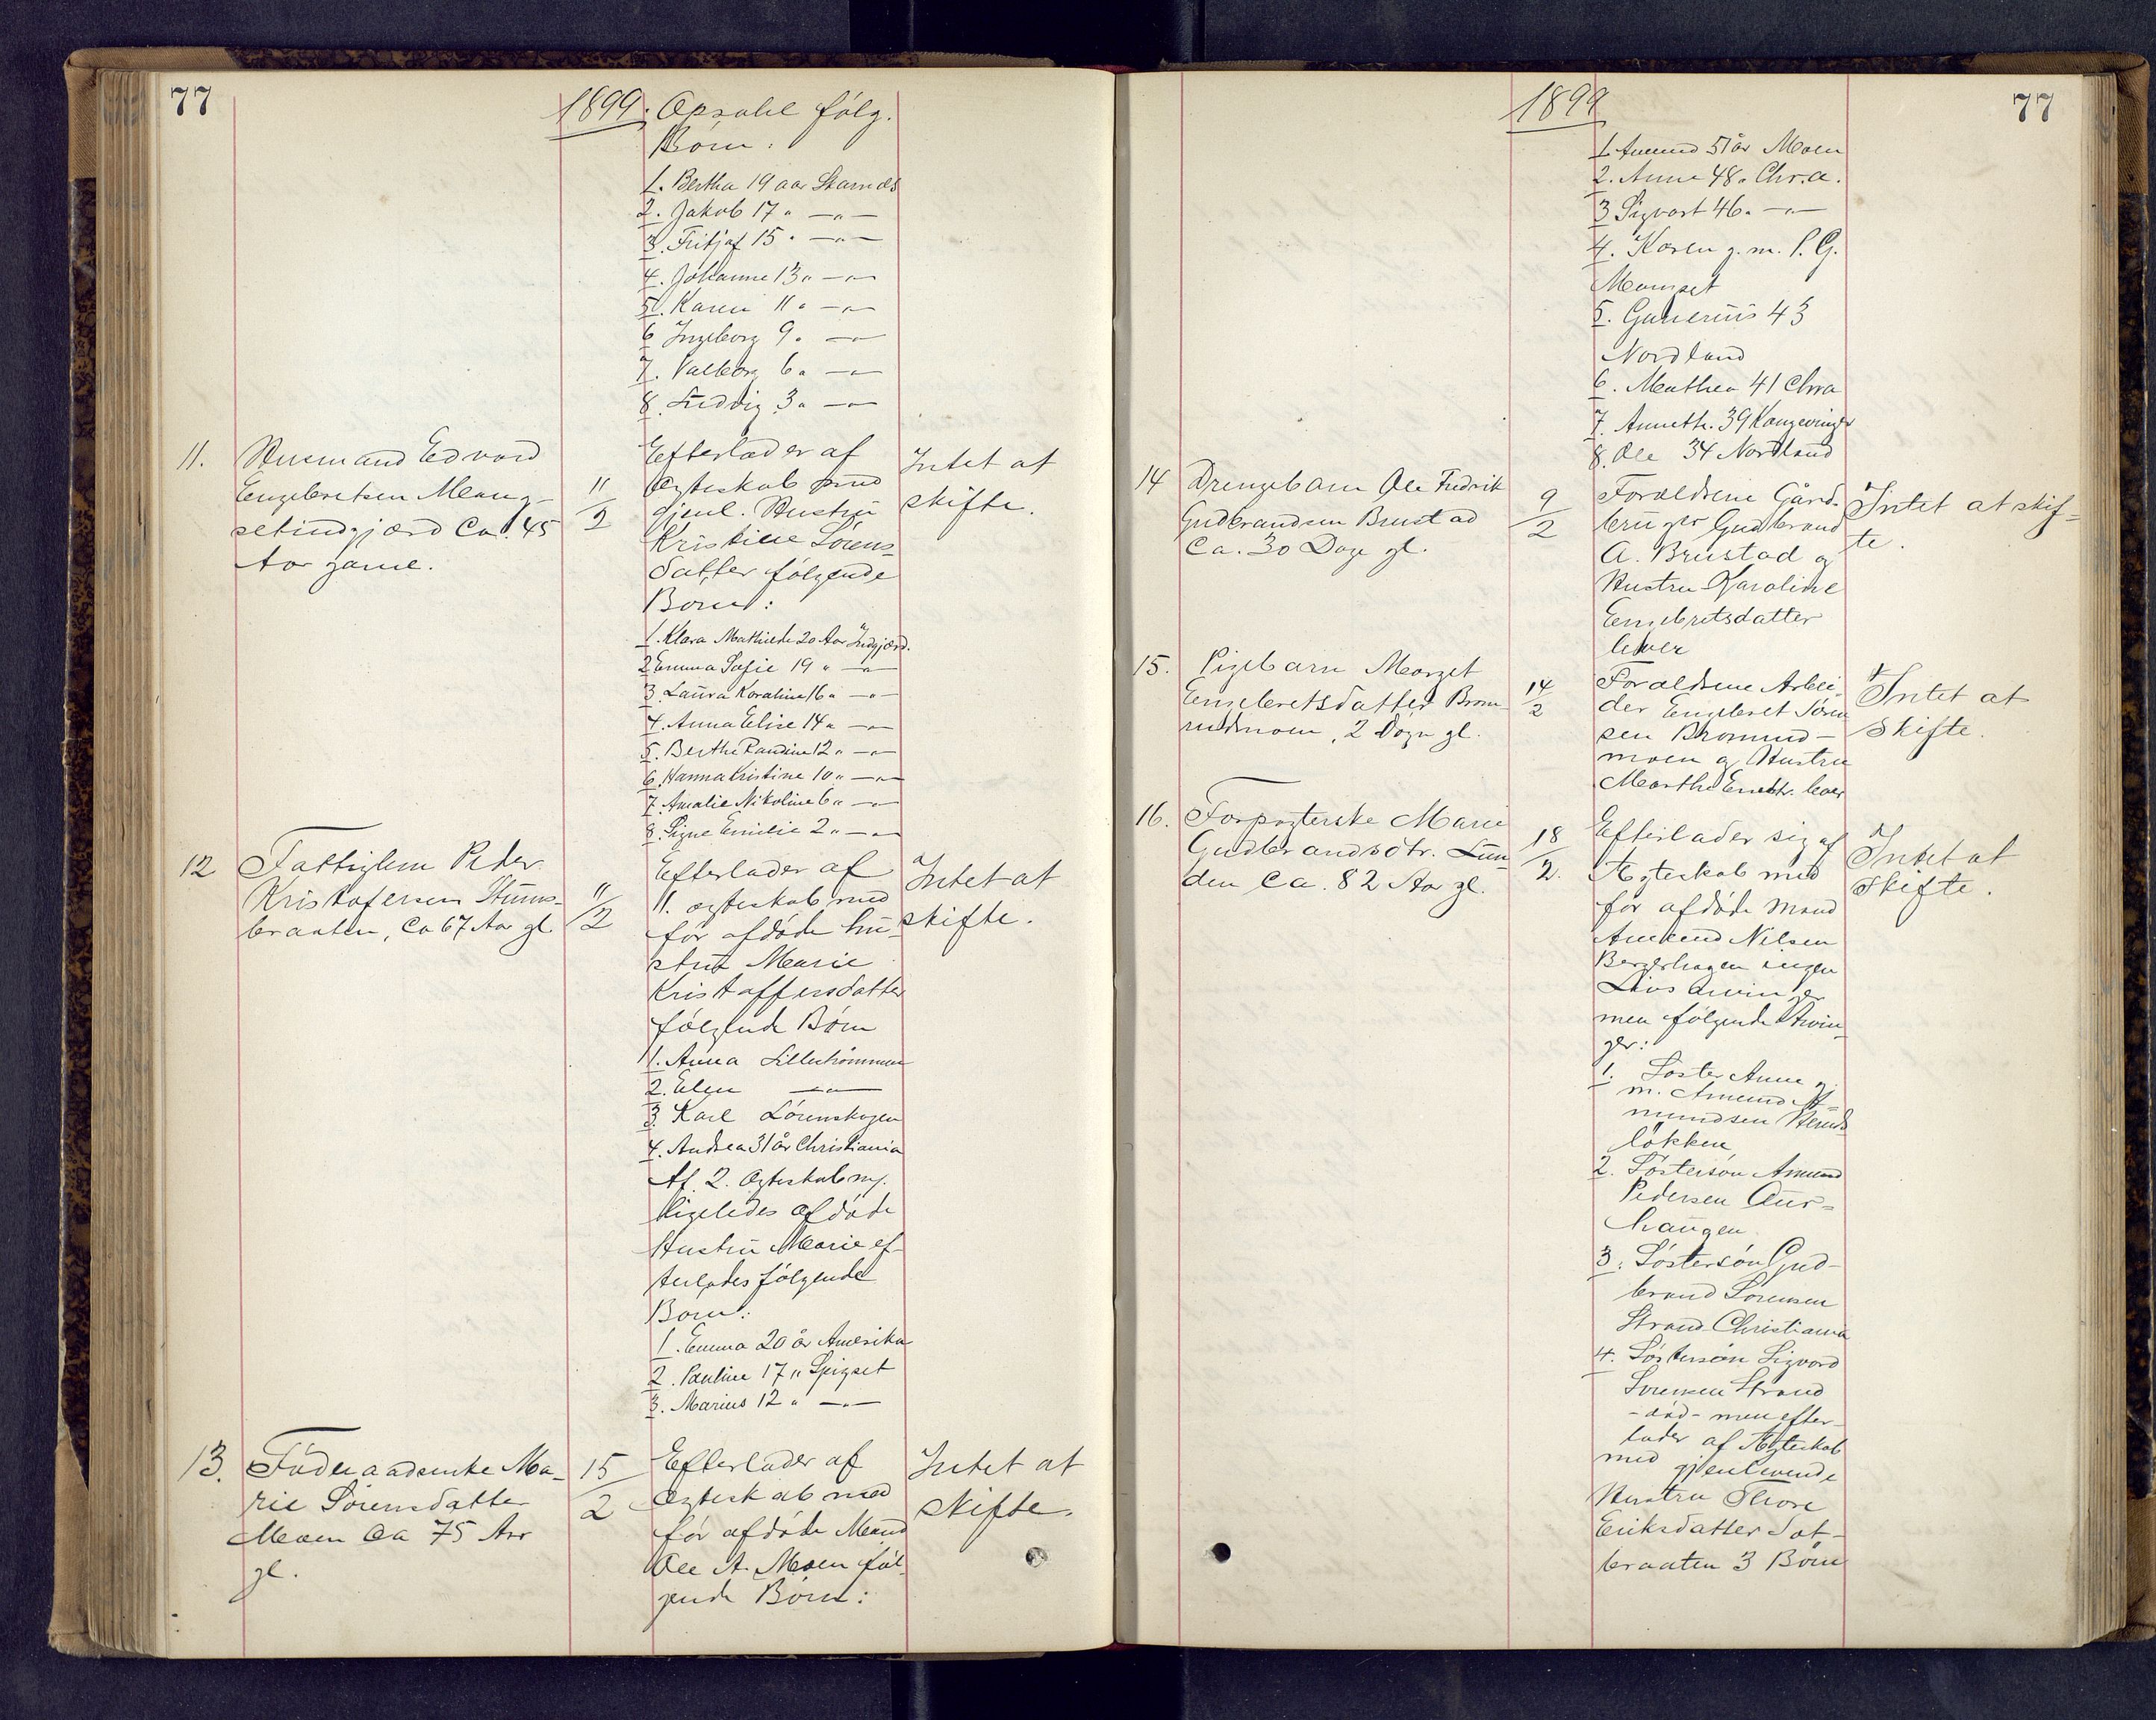 77
1899. Opsahl følg.
Børn:
1. Bertha 19 aar Skarnæs
2. Jakob 17 " —"—
3. Fritjof 15 " —"—
4. Johanne 13 " —"—
5. Karen 11 " —"—
6 Ingeborg 9 " —"—
7. Valborg 6 " —"—
8. Ludvig 3 " —"—
11. Husmand Edvard
Engebretsen Mang-
setindgjærd Ca. 45
Aar gamle.
11/2
Efterlader af
Ægteskab med
gjenl. Hustru
Kristine Sørens-
datter følgende
Børn:
1. Klara Mathilde 20 Aar Indgjærd.
2 Emma Sofie 19 " —"—
3. Laura Karoline 16 " —"—
4. Anna Elise 14 " —"—
5. Berthe Randine 12 " —"—
6. Hanna Kristine 10 " —"—
7. Amalie Nikoline 6 " —"—
8. Signe Emilie 2 " —"—
Intet at
skifte.
12 Fattiglem Peder
Kristofersen
braaten, Ca 67 Aar gl.
11/2
Efterlader af
11. ægteskab med
før afdøde hu-
stru Marie
Kristoffersdatter
følgende Børn
1. Anna Lillestrømmen
2. Elen —"—
3. Karl Lørenskogen
4. Andrea 31 år Christiania
Af 2. Ægteskab m.
ligeledes afdøde
Hustru Marie ef-
terlades følgende
Børn:
1. Emma 20 år Amerika
2. Pauline 17 " Spigset
3. Marius 12 " —"—
Intet at
skifte.
13. Føderaadsenke Ma-
rie Sørensdatter
Moen Ca 75 Aar
gl.
15/2
Efterlader af
Ægteskab med
før afdøde Mand
Ole A. Moen føl-
gende Børn:
Intet at
skifte.
1899
77
1. Amund 51 år Moen
2. Anne 48 " Chr.a.
3 Sigvart 46 " —"—
4. Karen g. m. P. G.
Mangset
5. Gunerius 43
Nordland
6. Mathea 41 Chra
7. Anneth. 39 Kongsvinger
8. Ole 34 Nordland
14 Drengebarn Ole Fredrik
Gudbrandsen Brustad
Ca. 30 Dage gl.
9/2
Forældrene Gård-
bruger Gudbrand
A. Brustad og
Hustru Karoline
Engebretsdatter
lever
Intet at skif-
te.
15. Pigebarn Marget
Engebretsdatter Brom-
rudmoen, 2 Døgn gl.
14/2
Forældrene Arbei-
der Engebret Søren
sen Bromrud-
moen og Hustru
Marthe lever
Intet at
skifte.
16. Forpagterske Marie
Gudbrandsdtr. Lun-
den Ca. 82 Aar gl.
18/2.
Efterlader sig af
Ægteskab med
før afdøde Mand
Amund Nilsen
Bergerhagen ingen
Livsarvinger
men følgende Arvin-
ger:
1. Søster Anne g.
m. Amund A-
mundsen
løkken
2. Søstersøn Amund
Pedersen Aur-
haugen.
3. Søstersøn Gud-
brand Sørensen
Strand Christiania
4. Søstersøn Sigvard
Sørensen Strand
- død - men efter-
lader af Ægteskab
med gjenlevende
Hustru Thore
Eriksdatter Sot-
braaten 3 Børn
Intet at
skifte.